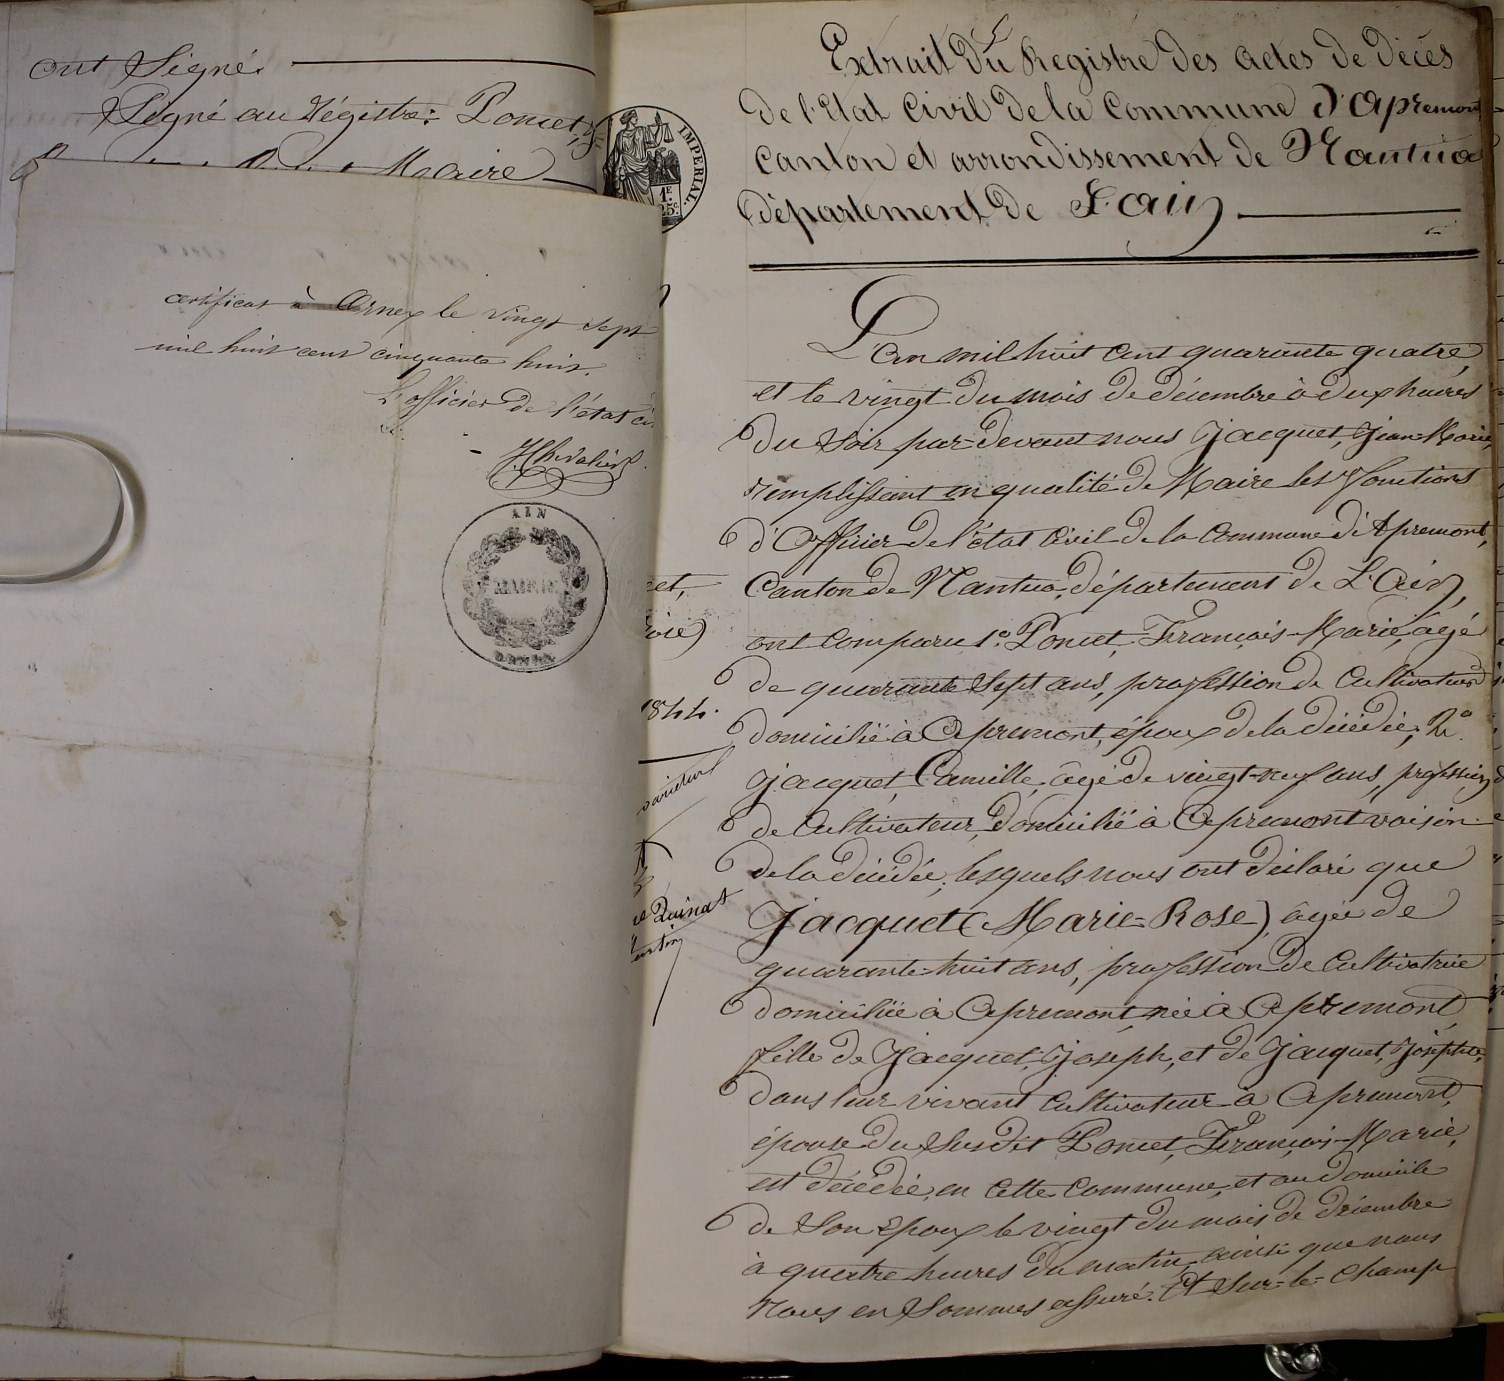 ont Signé.
Signé au Régistre: Poncet,
Maire
certificat à Ornex le vingt sept
mil huit cent cinquante huit.
L'officier de l'état ci
JChevalier
AIN
MAIRIE
ORNEX
IMPERIAL.
1F
25c
Extrait Du Registre Des Actes De Décès
De l'Etat Civil De la Commune D'Apremont
Canton et arrondissement de Nantua
Département De L'ain
L'an mil huit cent quarante quatre,
et le vingt Du mois De Décembre à deux heures
Du Soir par-Devant nous Jacquet, Jean-Marie,
remplissant en qualité De Maire les Fonctions
D'Officier De l'état Civil De la Commune D'Apremont,
Canton De Nantua, Département De L'Ain,
ont comparu 1º Poncet, François-Marie, agé
De quarante Sept ans, profession De Cultivateur
Domicilié à Apremont, époux De la Décédée, 2º
Jacquet, Camille, âgé De vingt-neuf ans, profession
De Cultivateur, Domicilié à Apremont voisin
De la Décédée; lesquels nous ont Déclaré que
Jacquet (Marie-Rose), âgée De
quarante-huit ans, profession De Cultivatrice
Domiciliée à Apremont, née à Apremont,
fille De Jacquet, Joseph, et De Jacquet, Josephte,
Dans leur vivant Cultivateur à Apremont,
épouse Du Susdit Poncet, François-Marie,
est Décédée, en Cette Commune, et au Domicile
De Son Epoux le vingt Du mois De Décembre
à quatre heures Du matin, ainsi que nous
nous en Sommes assuré. Et Sur-le-Champ
1844.